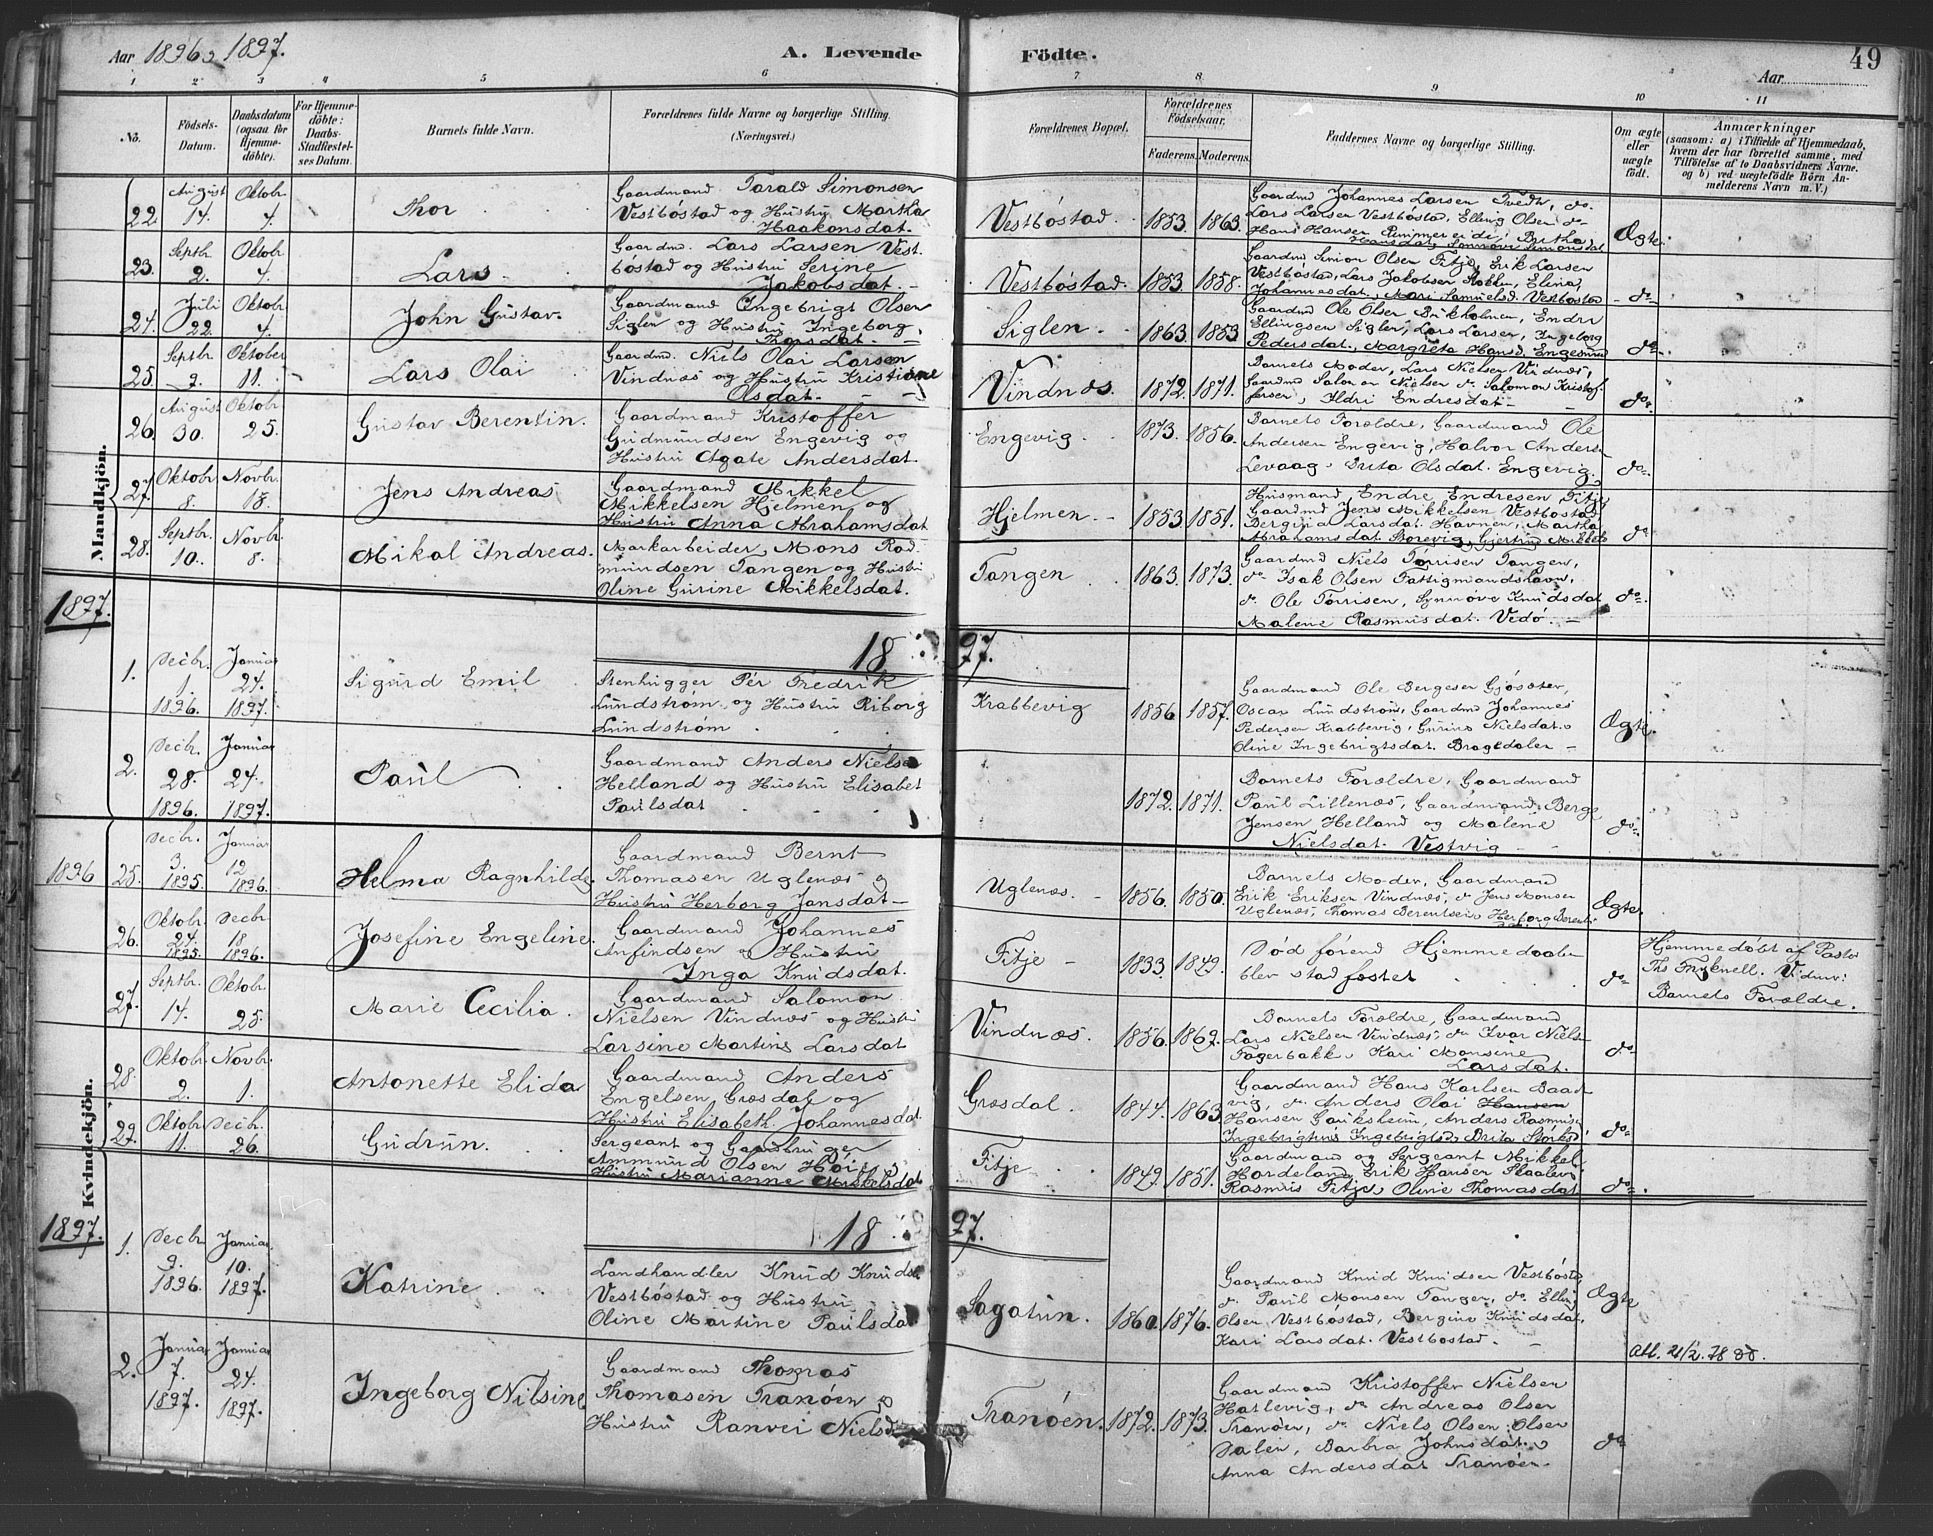 Aar 1896 og 1897.
A. Levende Födte.
Aar
49
1 2 3 4 5 6 7 8 9 10 11
No.
Födsels-Datum.
Daabsdatum (ogsaa for Hjemmedöbte).
For Hjemmedöbte: Daabs-Stadfæstelses Datum.
Barnets fulde Navn.
Forældrenes fulde Navne og borgerlige Stilling.
(Næringsvei.)
Forældrenes Bopæl.
Forældrenes Födselsaar.
Faderens. Moderens.
Faddernes Navne og borgerlige Stilling.
Om ægte eller uægte födt.
Anmærkninger
(saasom: a) i Tilfælde af Hjemmedaab, hvem der har forrettet samme, med Tilföielse af to Daabsvidners Navne. og b) ved uægtefödte Börn Anmelderens Navn m. V.)
Mandkjön.
22. August 14. Oktobr. 4. Thor
Gaardmand Tarald Simonsen
Vestböstad og Hustru Martha
Haakonsdat.
Vestböstad. 1853. 1863.
Gaardmd Johannes Larsen Tvedt, do.
Lars Larsen Vestbösta, Elling Olsen do
Hans Hansen Rimmereide, Britha
Hansdat, Synnöve Simonsdat
Ægte
23. Septbr. 2. Oktobr. 4. Lars
Gaardmd. Lars Larsen Vest-
böstad og Hustru Serine
Jakobsdat.
Vestböstad. 1853. 1858.
Gaardmd Simon Olsen Fitje, Erik Larsen
Vestböstad, Lars Jakobsen Stokken, Elina
Johannesdat., Mari Samuelsd. Vestbösta
do
24. Juli 22. Oktobr. 4. John Gustav
Gaardmand Ingebrigt Olsen
Siglen og Hustru Ingeborg
Larsdat.
Siglen 1863. 1853
Gaardmd Ole Olsen Eikholmen, Endre
Ellingsen Siglen, Lars Larsen, Ingeborg
Pedersdat., Margreta Hansd. Engesund
do
25. Septbr. 2. Oktober 11. Lars Olai
Gaardmd. Niels Olai Larsen
Vindnæs og Hustru Kristiane
Olsdat.
Vindnæs. 1872. 1871.
Barnets Moder, Lars Nielsen Vindnæs,
Gaardmd Salomon Nielsen do Salomon Kristof-
fersen, Ildri Endresdat
do
26. August 30. Oktobr. 25. Gustav Berentin.
Gaardmand Kristoffer
Gudmundsen Engevig og
Hustru Agate Andersdat.
Engevig. 1873. 1856.
Barnets Forældre, Gaardmand Ole
Andersen Engevig, Halvor Anders.
Levaag, Brita Olsdat. Engevig.
do
27. Oktobr. 8. Novbr. 15. Jens Andreas
Gaardmand Mikkel
Mikkelsen Hjelmen og
Hustru Anna Abrahamsdat
Hjelmen. 1853. 1851.
Husmand Endre Endresen Fitje
Gaardmd Jens Mikkelsen Vestböstad
Bergina Larsdat. Havnen, Martha
Abrahamsdat Storevig, Gjertine Mikkels
do
28. Septbr. 10. Novbr. 8. Mikal Andreas.
Markarbeider Mons Rod-
mundsen Tangen og Hustru
Oline Gurine Mikkelsdat.
Tangen 1863. 1873.
Gaardmd Niels Törrisen Tangen,
do Isak Olsen Fattigmandshavn,
do. Ole Törrisen, Synnöve Knudsdat
Malene Rasmusdat. Vedö.
do
1897.
1897.
1. Decbr. 1. 1896. Januar 24. 1897. Sigurd Emil
Stenhugger Per Fredrik
Lundström og Hustru Riborg
Lundström
Krabbevig 1856 1857.
Gaardmand Ole Bergesen Gjösæter,
Oscar Lundström, Gaardmd Johannes
Pedersen Krabbevig, Gurina Nielsdat.
Oline Ingebrigtsdat. Bragedalen
Ægte.
2. Decbr. 28. 1896. Januar 24. 1897. Paul
Gaardmand Anders Nielsen
Helland og Hustru Elisabet
Paulsdat
1872. 1871.
Barnets Forældre, Gaardmand
Paul Lillenæs, Gaardmand Berge
Jensen Helland og Malene
Nielsdat. Vestvig
do
Kvindekjön.
1896
25. Decbr. 3. 1895. Januar 12 1896. Helma Ragnhilde.
Gaardmand Bernt
Thomasen Uglenæs og
Hustru Herborg Jansdat
Uglenæs. 1856. 1850.
Barnets Moder, Gaardmand
Erik Eriksen Vindnæs, do Jens Monsen
Uglenæs, Thomas Berentsen, Herborg Berents
Ægte.
26. Oktobr. 24. 1895. Decbr. 18 1896. Josefine Engeline.
Gaardmand Johannes
Anfindsen og Hustru
Inga Knudsdat.
Fitje 1833. 1849.
Död förend Hjemmedaaben
blev stadfæstet
do
Hjemmedöbt af Pastor
Ths Fryknell. Vidner:
Barnets Forældre.
27. Septbr. 14. Oktobr. 25. Marie Cecilia.
Gaardmand Salomon
Nielsen Vindnæs og Hustru
Larsine Martine Larsdat
Vindnæs. 1856. 1862.
Barnets Forældre, Gaardmand
Lars Nielsen Vindnæs, do Ivar Niels.
Fagerbakk, Kari Monsine
Larsdat.
do
28. Oktobr. 2. Novbr. 1. Antonette Elida
Gaardmand Anders
Engelsen Græsdal og
Hustru Elisabeth Johannesdat
Græsdal. 1844. 1863
Gaardmand Hans Karlsen Baad-
vig, do Anders Olai Hansen
Hansen Gauksheim, Anders Rasmus.
Ingebrigtine Ingebrigtsd, Brita Störks.
do
29. Oktobr. 11. Decbr. 26. Gudrun.
Sergeant og Gaardbruger
Ammund Olsen Höie og
Hustru Marianne Mikkelsdat
Fitje 1849. 1851.
Gaardmand og Sergeant Mikkel
Hordeland, Erik Hansen Skaalevi
Rasmus Fitje, Oline Thomasdat
do
1897.
1897.
1. Decbr. 9. 1896. Januar. 10. 1897. Katrine
Landhandler Knud Knudsen
Vestböstad og Hustru
Oline Martine Paulsdat
Sagatun. 1860. 1876.
Gaardmand Knud Knudsen Vestbösta,
do Paul Monsen Tangen, do Elling
Olsen Vestböstad, Bergine Knudsdat,
Kari Larsdat. Vestböstad
Ægte
Att. 21/2.78
2. Januar 7. 1897. Januar 24. 1897. Ingeborg Nilsine
Gaardmand Thomas
Thomasen Tranöen og
Hustru Ranvei Nielsd
Tranöen. 1872. 1873.
Gaardmand Kristoffer Nielsen
Hatlevig, do Andreas Olsen
Tranöen, do Niels Olsen Olsen
Dalen, Barbra Johnsdat.
Anna Andersdat Tranöen
do